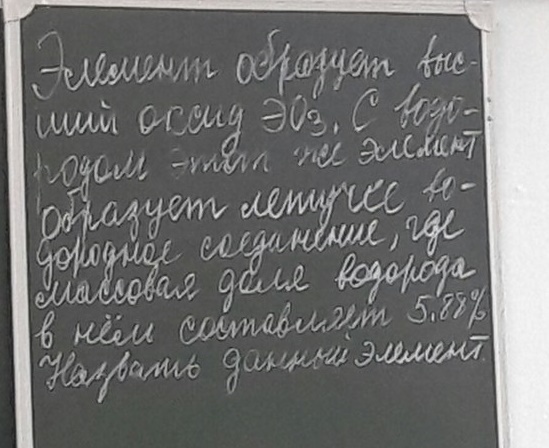 Элемент образует выс-
ший оксид ЭО₃. С водо-
родом этот же элемент
образует летучее во-
дородное соединение, где
массовая доля водорода
в нём составляет 5.88%
Назвать данный элемент.